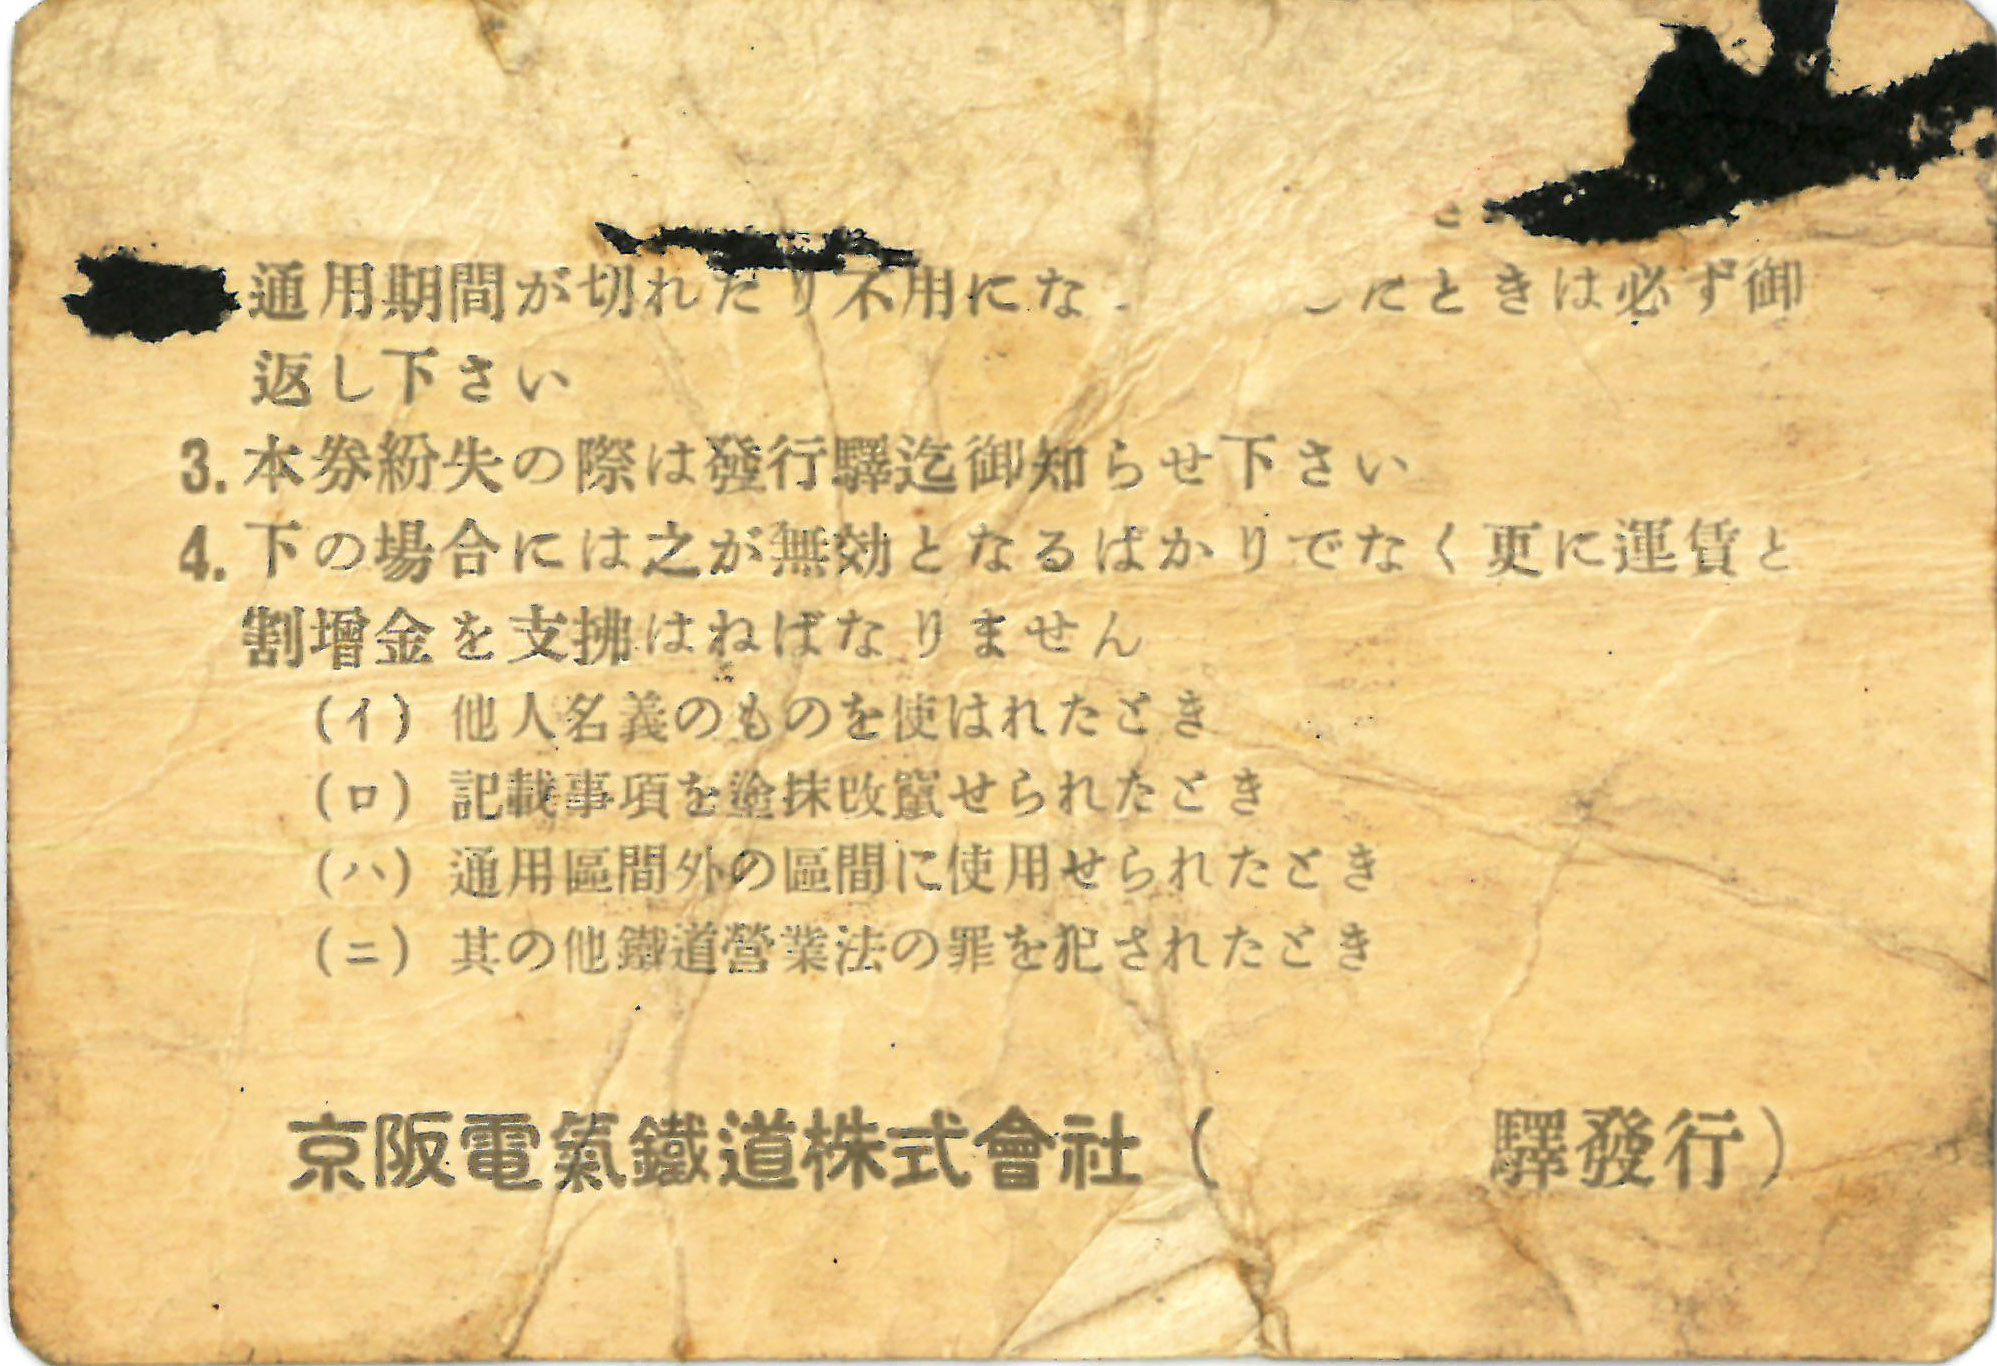 通用期間が切れたり不用にな したときは必ず御
返し下さい
3. 本券紛失の際は發行驛迄御知らせ下さい
4. 下の場合には之が無効となるばかりでなく更に運賃と
割增金を支拂はねばなりません
(イ) 他人名義のものを使はれたとき
(ロ) 記載事項を塗抹改竄せられたとき
(ハ) 通用區間外の區間に使用せられたとき
(ニ) 其の他鐵道營業法の罪を犯されたとき
京阪電氣鐵道株式會社 ( 驛發行)